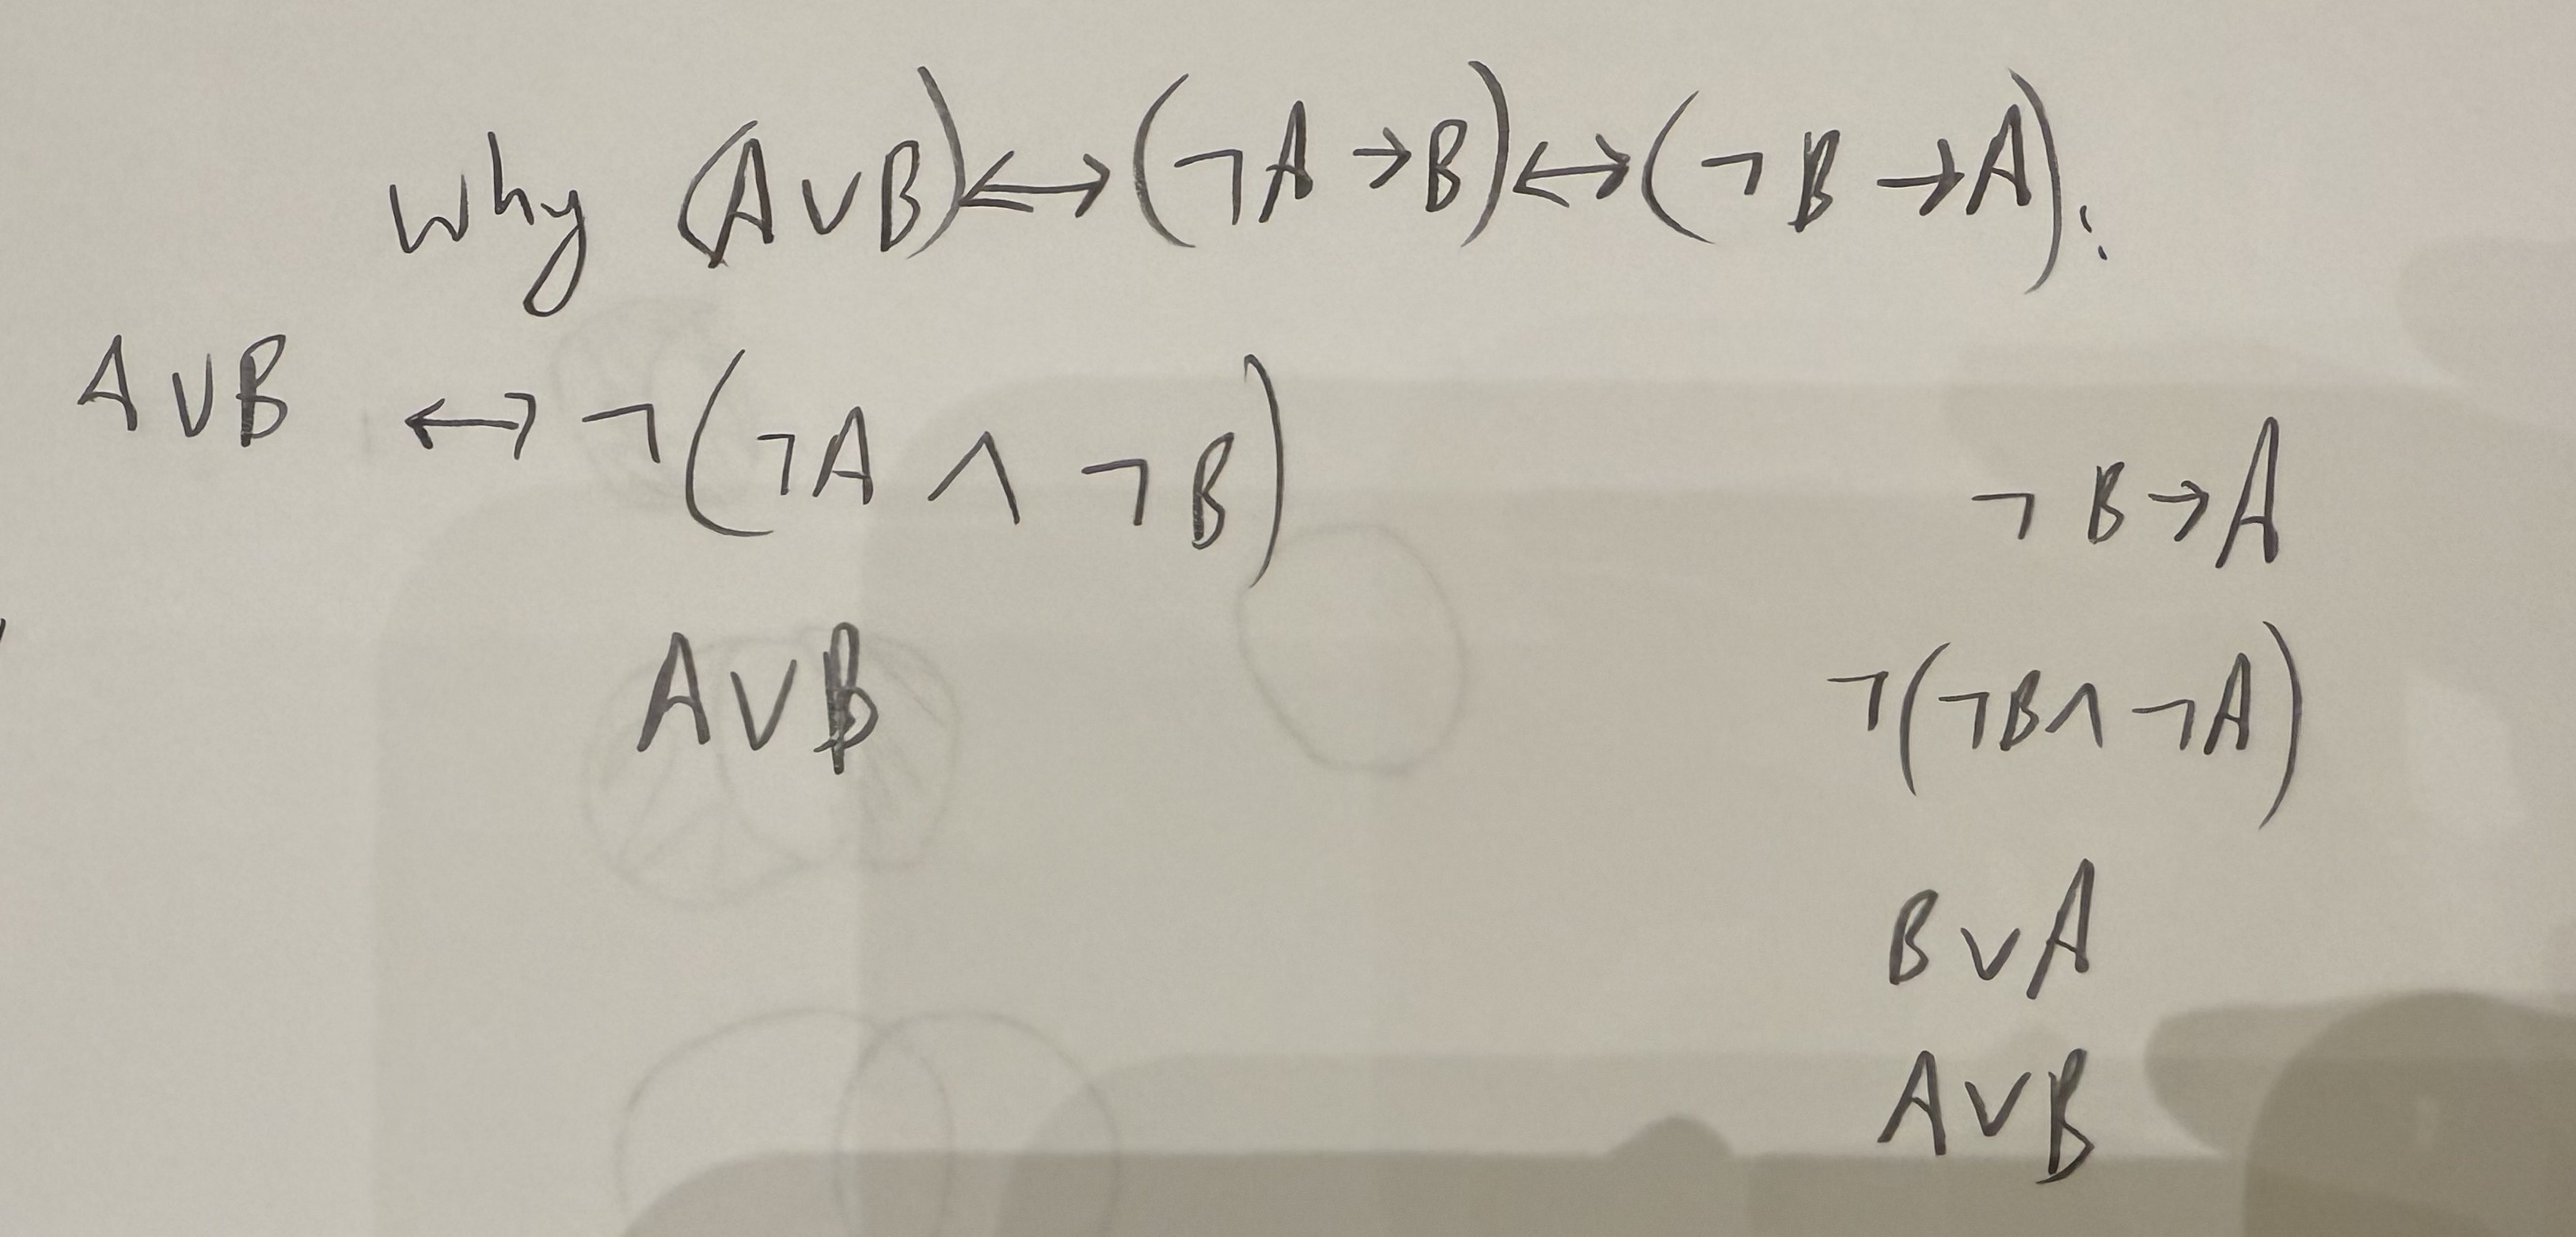 Why (A∨B)↔(¬A→B)↔(¬B→A):
A∨B ↔ ¬(¬A ∧ ¬B)
A∨B
¬B→A
¬(¬B∧¬A)
B∨A
A∨B